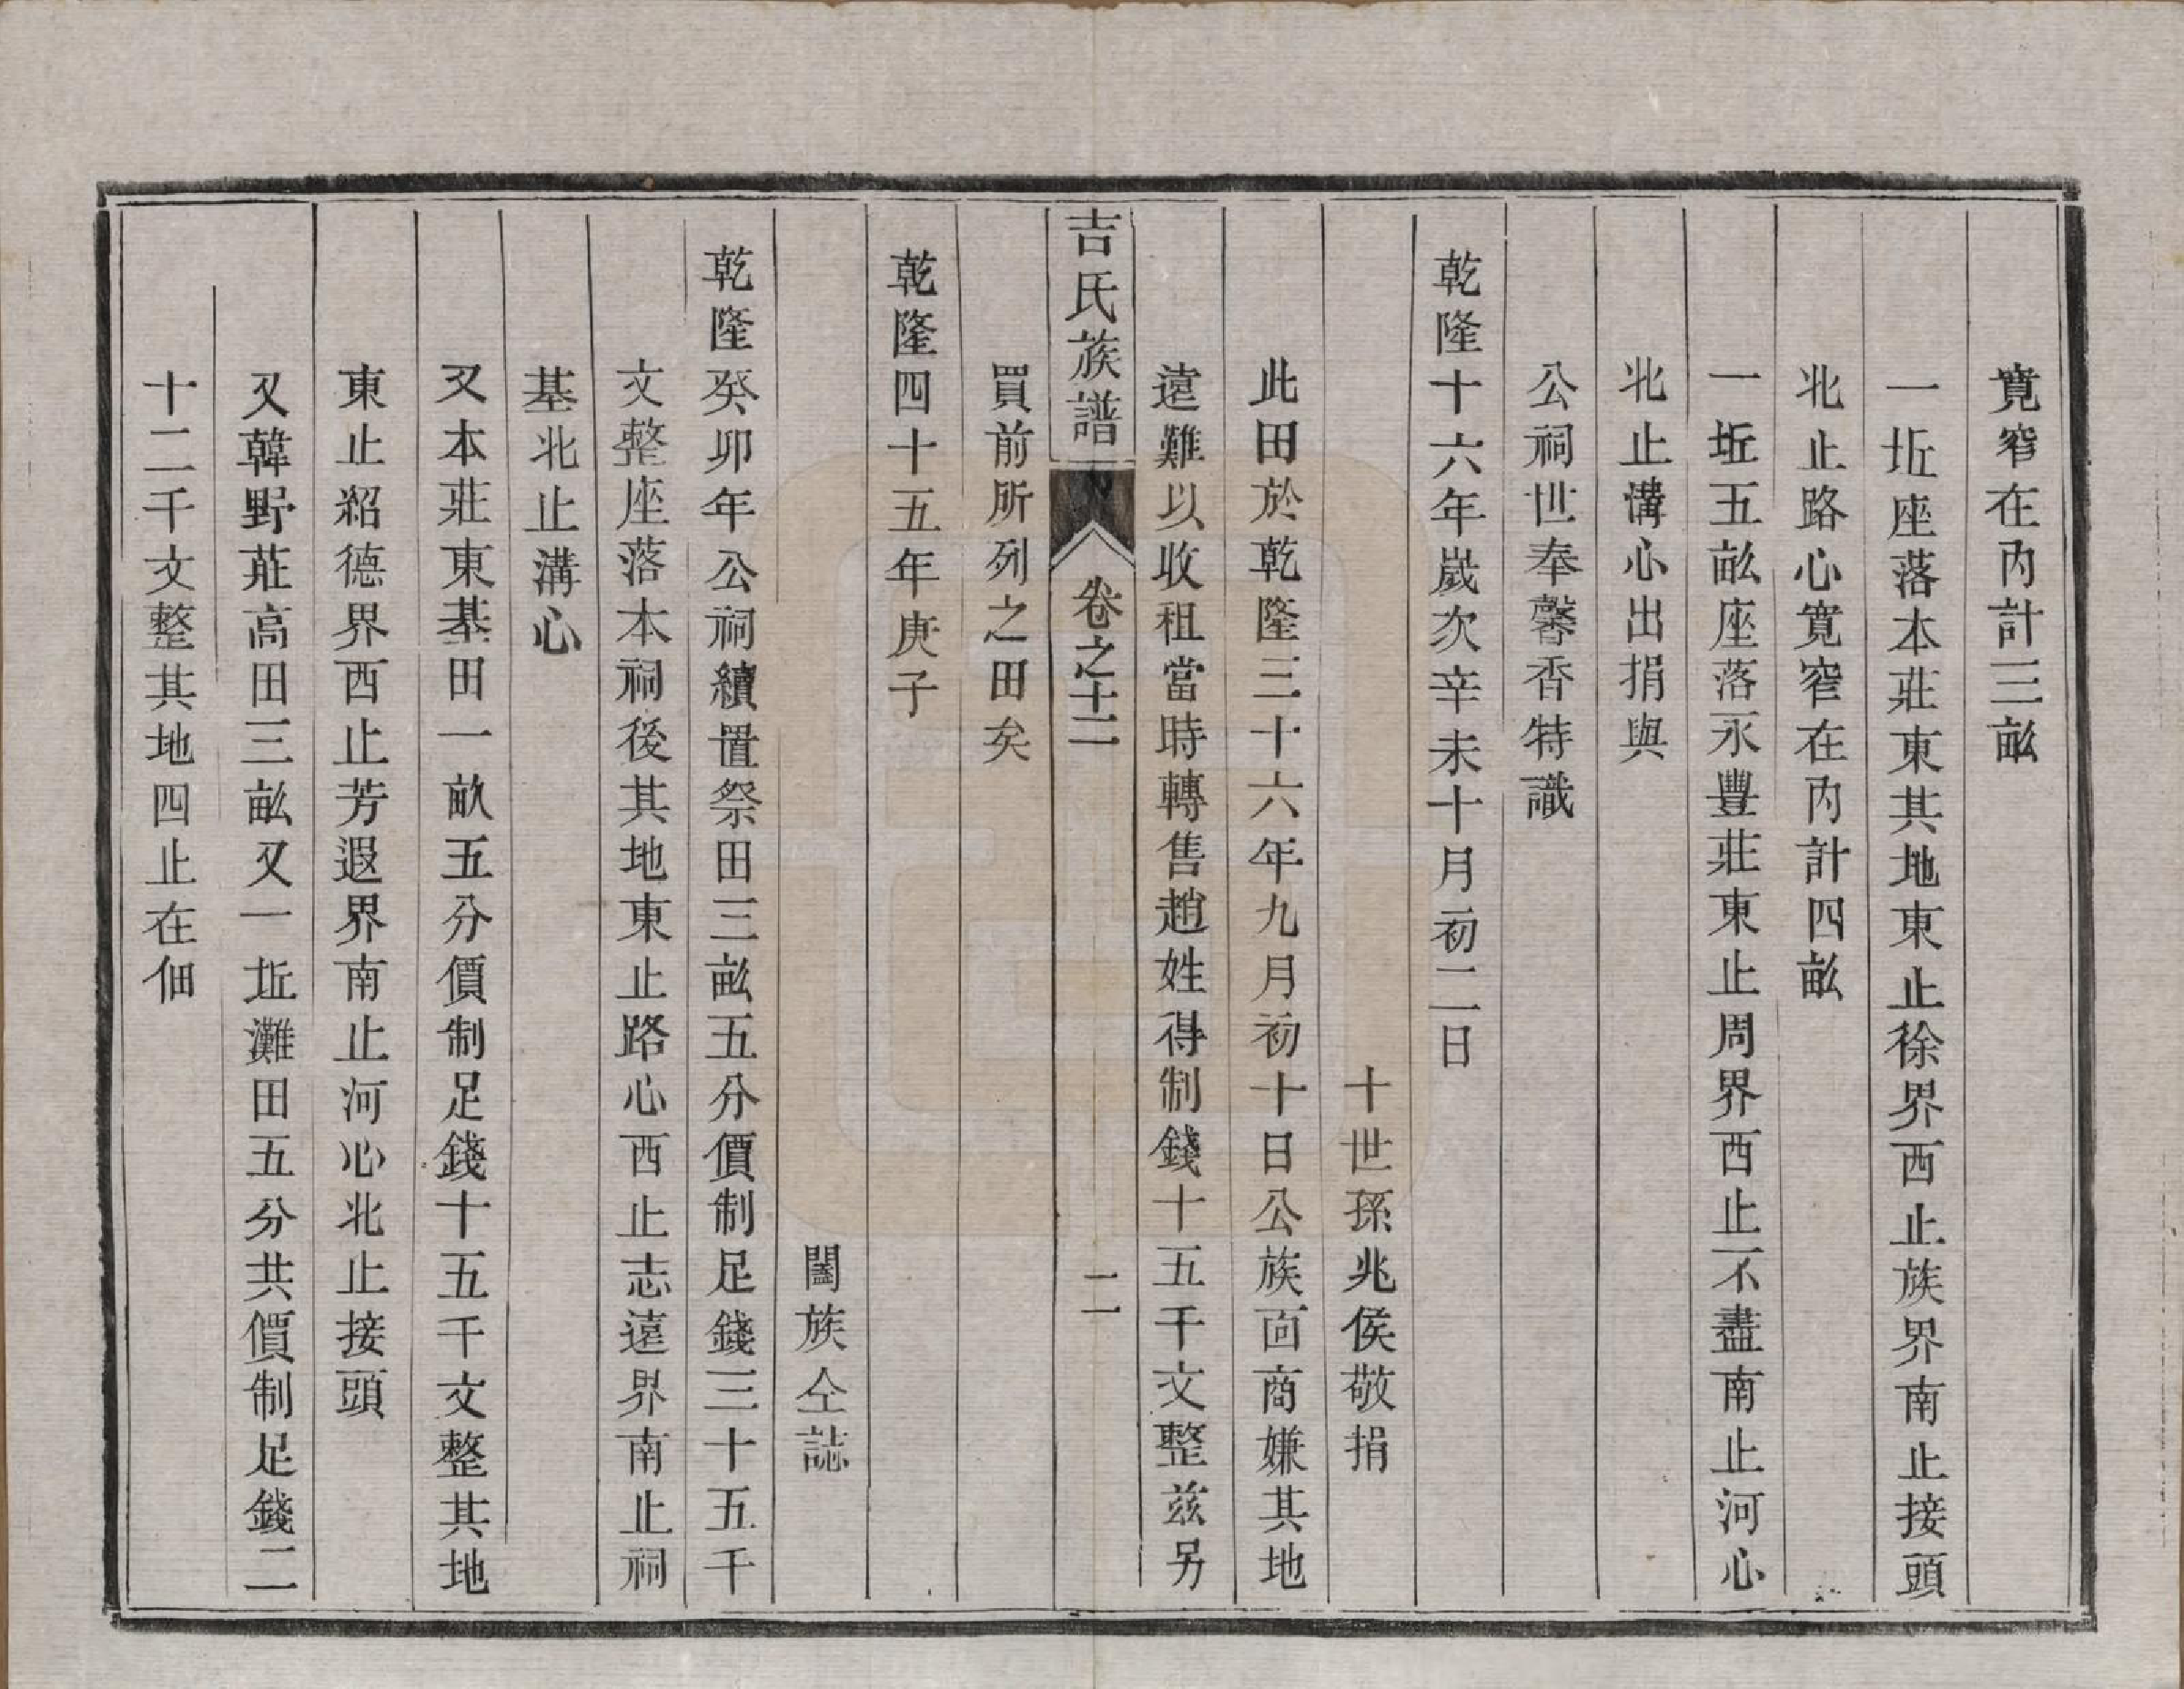 寛窄在內計三畆
一坵座落本莊東其地東止徐界西止族界南止接頭
北止路心寛窄在內計四畆
一坵五畆座落永豐莊東止周界西止不盡南止河心
北止溝心出捐與
公祠世奉馨香特識
乾隆十六年歲次辛未十月初二日
十世孫兆侯敬捐
此田於乾隆三十六年九月初十日公族面商嫌其地
遠難以收租當時轉售趙姓得制錢十五千文整茲另
吉氏族譜 卷之十二 二
買前所列之田矣
乾隆四十五年庚子
闔族仝誌
乾隆癸卯年公祠續置祭田三畆五分價制足錢三十五千
文整座落本祠後其地東止路心西止志遠界南止祠
基北止溝心
又本莊東基田一畝五分價制足錢十五千文整其地
東止紹德界西止芳遐界南止河心北止接頭
又韓野莊高田三畆又一坵灘田五分共價制足錢二
十二千文整其地四止在佃